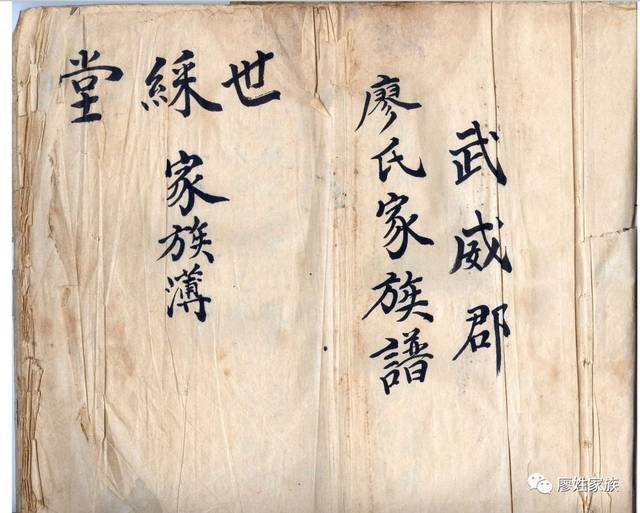 武威郡
廖氏家族譜
世綵堂
家族簿
廖姓家族